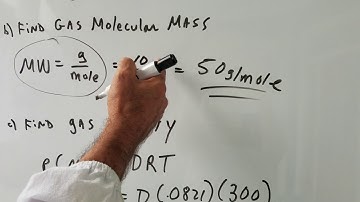 b) FIND GAS MOLECULAR MASS
MW = g/mole = 10 = 50g/mole
c) FIND gAS
DRT
= D(.0821)(300)